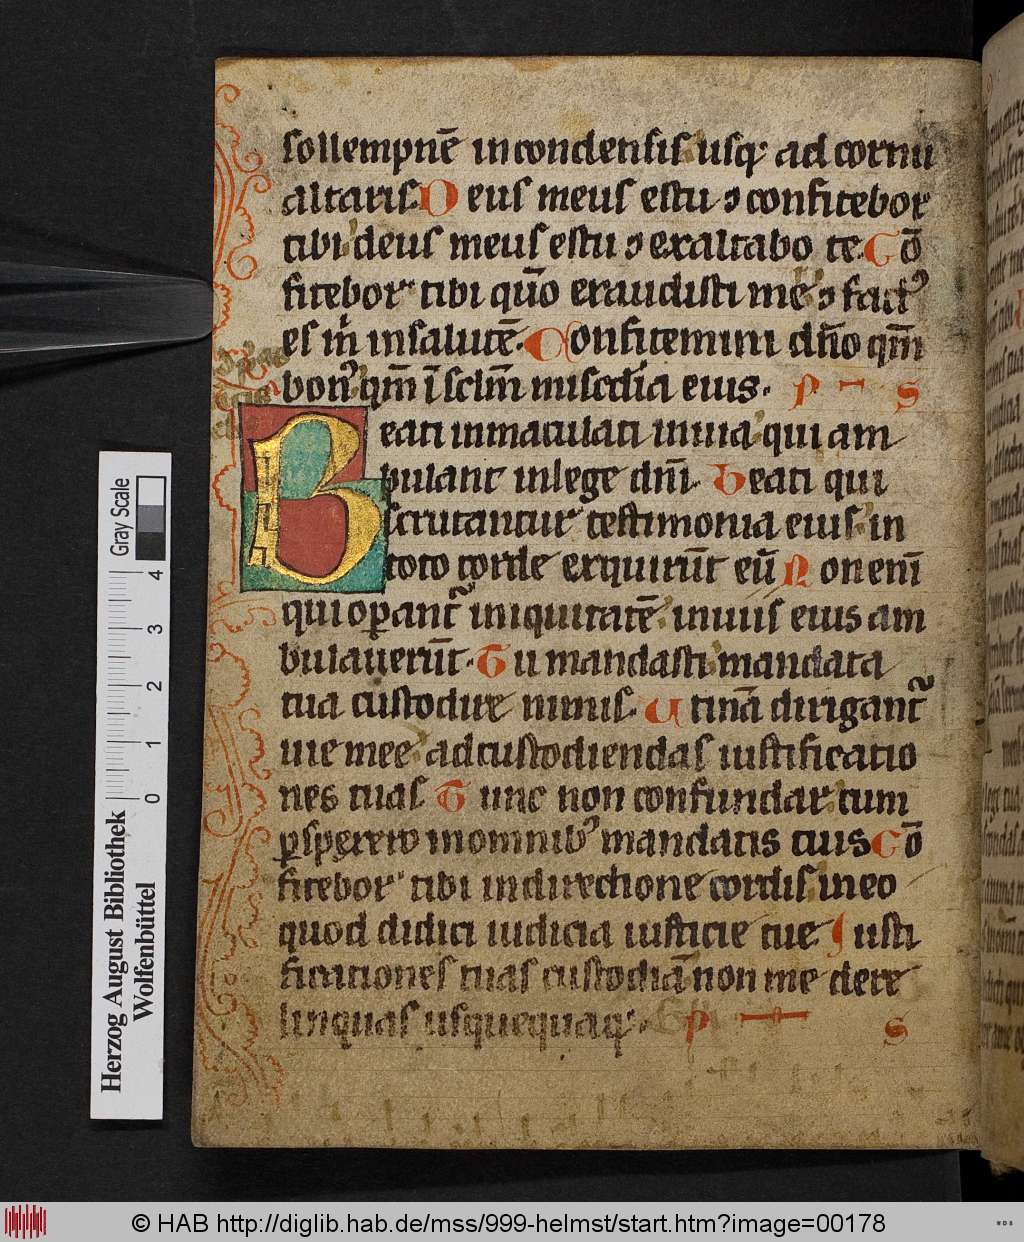 sollempnē in condensis usq; ad cornu
altaris Deus meus es tu ⁊ confitebor
tibi deus meus es tu ⁊ exaltabo te. Cō
fitebor tibi quō exaudisti me ⁊ factꝰ
es m̄ in salutē. Confitemini dn̄o qm̄
bonꝰ qm̄ ī sclm̄ miscd̄ia eius. P S
Beati inmaculati in uia qui am
bulant in lege dn̄i. Beati qui
scrutantur testimonia eius in
toto corde exquirūt eū Non enī
qui oꝑant᷑ iniquitatē in uiis eius am
bulauerūt. Tu mandasti mandata
tua custodire nimis. Utinā dirigant᷑
uie mee ad custodiendas iustificatio
nes tuas Tunc non confundar cum
ꝑspexero in omnibꝰ mandatis tuis Cō
fitebor tibi in directione cordis in eo
quod didici iudicia iusticie tue Iusti
ficationes tuas custodiā non me dere
linquas usquequaq;. P S
Gray Scale
0 1 2 3 4
Herzog August Bibliothek
Wolfenbüttel
© HAB http://diglib.hab.de/mss/999-helmst/start.htm?image=00178